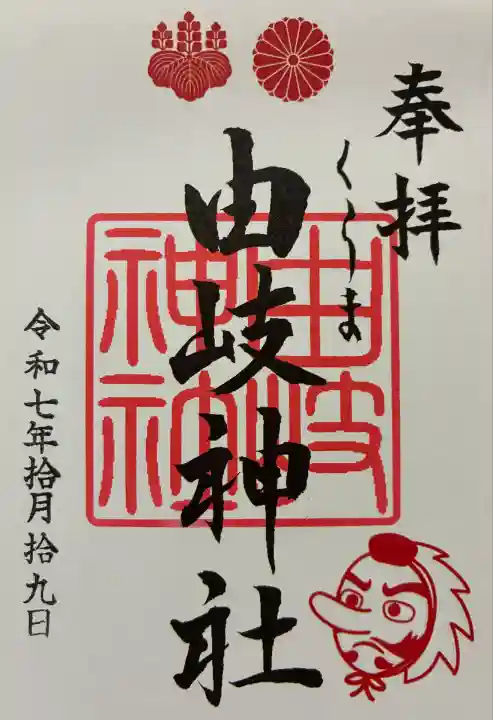 奉拝
くらま
由岐神社
由岐神社
令和七年拾月拾九日